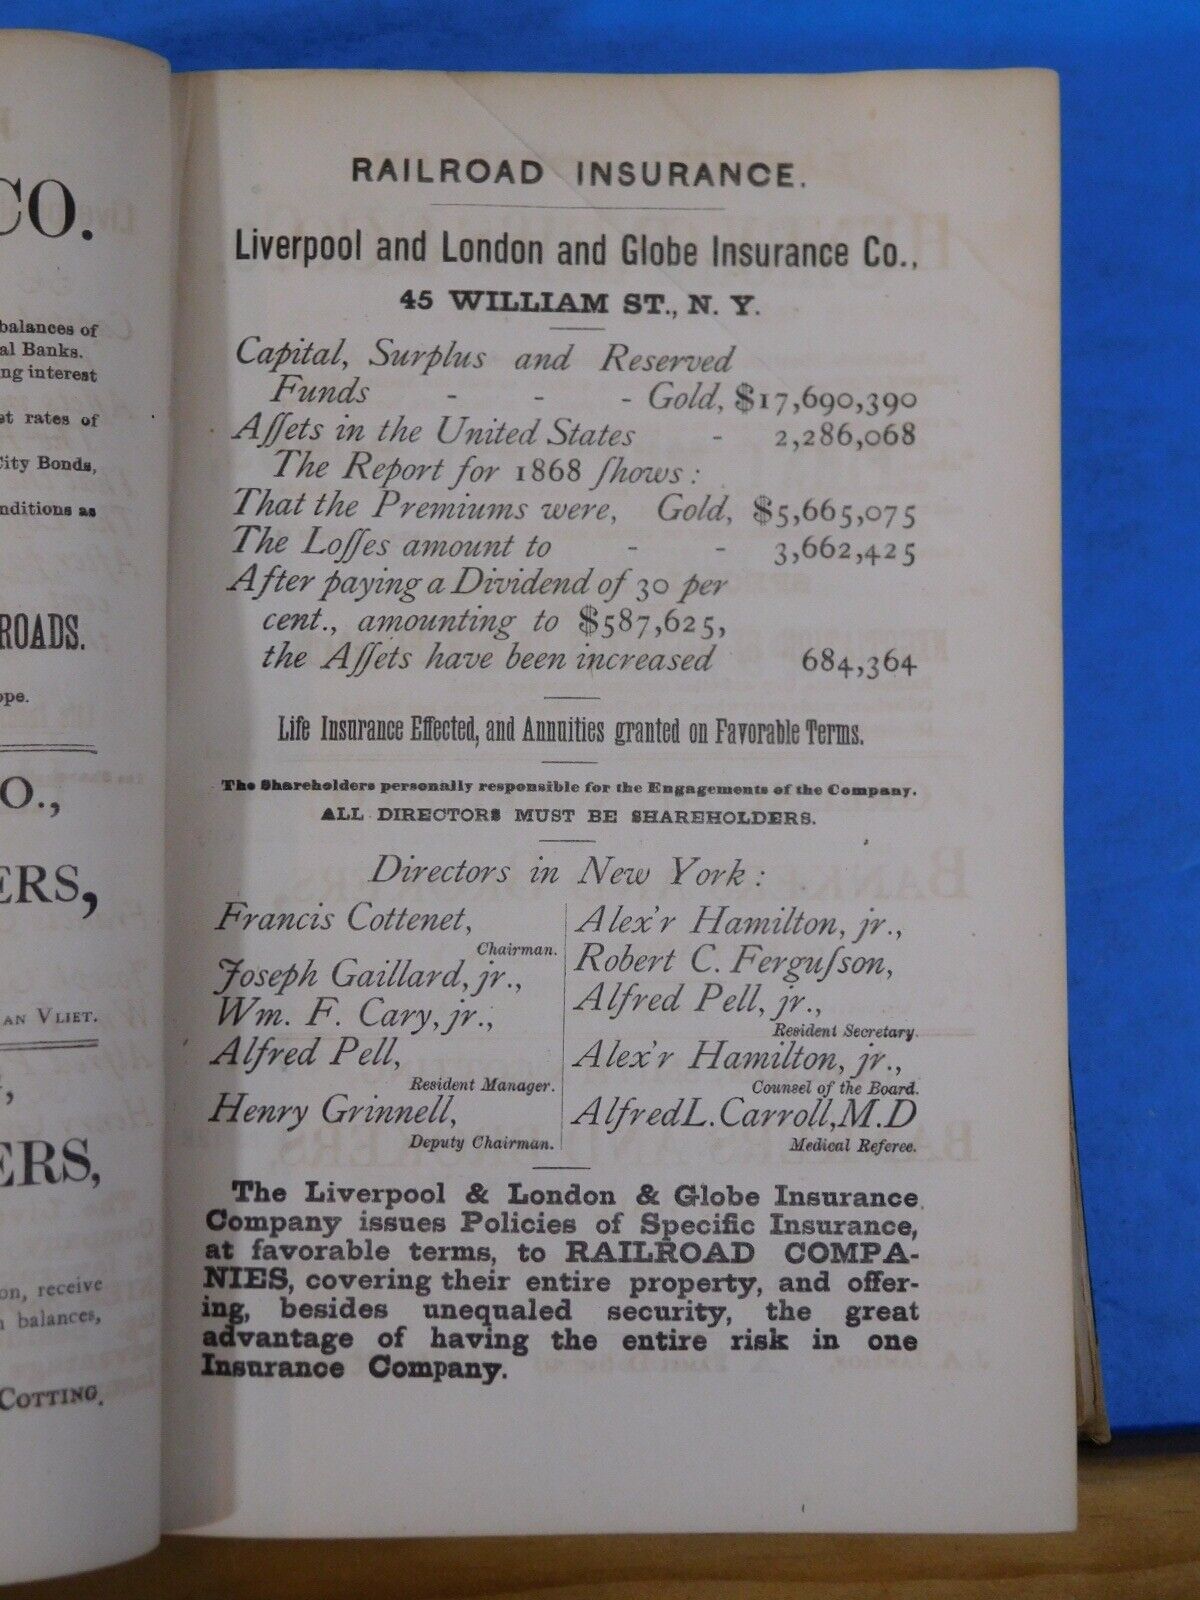 CO.
balances of
al Banks.
ng interest
et rates of
City Bonds,
nditions as
ROADS.
ope.
O.,
ERS,
AN VLIET.
ERS,
on, receive
balances,
COTTING.
RAILROAD INSURANCE.
Liverpool and London and Globe Insurance Co.,
45 WILLIAM ST., N. Y.
Capital, Surplus and Reserved
Funds - - - Gold, $17,690,390
Aſſets in the United States - 2,286,068
The Report for 1868 ſhows:
That the Premiums were, Gold, $5,665,075
The Loſſes amount to - - 3,662,425
After paying a Dividend of 30 per
cent., amounting to $587,625,
the Aſſets have been increased 684,364
Life Insurance Effected, and Annuities granted on Favorable Terms.
The Shareholders personally responsible for the Engagements of the Company.
ALL DIRECTORS MUST BE SHAREHOLDERS.
Directors in New York:
Francis Cottenet,
Chairman.
Joseph Gaillard, jr.,
Wm. F. Cary, jr.,
Alfred Pell,
Resident Manager.
Henry Grinnell,
Deputy Chairman.
Alex'r Hamilton, jr.,
Robert C. Ferguſson,
Alfred Pell, jr.,
Resident Secretary.
Alex'r Hamilton, jr.,
Counsel of the Board.
Alfred L. Carroll, M.D
Medical Referee.
The Liverpool & London & Globe Insurance
Company issues Policies of Specific Insurance,
at favorable terms, to RAILROAD COMPA-
NIES, covering their entire property, and offer-
ing, besides unequaled security, the great
advantage of having the entire risk in one
Insurance Company.